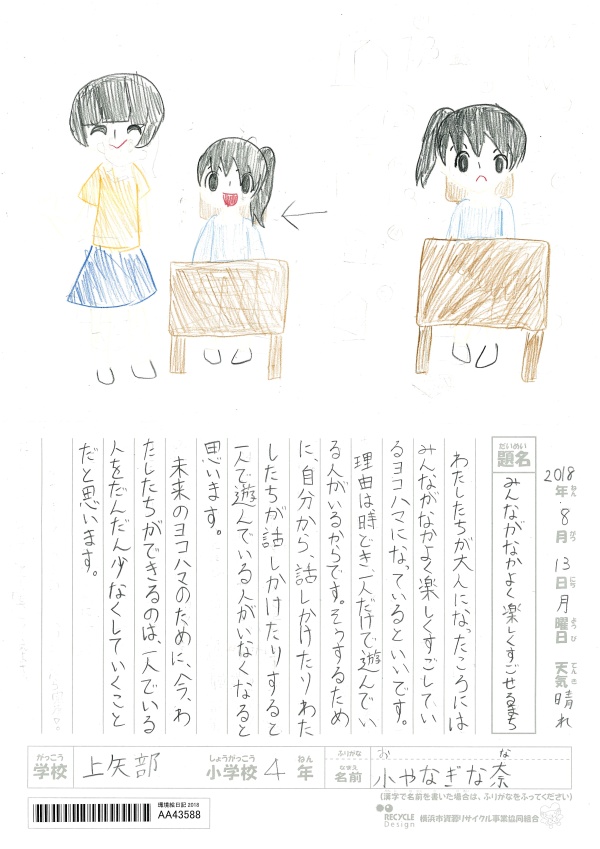 2018年8月13日月曜日 天気晴れ
ねん がつ にち ようび てんき
だいめい
題名 みんながなかよく楽しくすごせるまち
わたしたちが大人になったころには
みんながなかよく楽しくすごしてい
るヨコハマになっているといいです。
理由は時どき一人だけで遊んでい
る人がいるからです。そうするため
に、自分から、話しかけたりわた
したちが話しかけたりすると
一人で遊んでいる人がいなくなると
思います。
未来のヨコハマのために、今、わ
たしたちができるのは、一人でいる
人をだんだん少なくしていくこと
だと思います。
がっこう しょうがっこう ねん ふりがな お な
学校 上矢部 小学校 4 年 なまえ 名前 小やなぎな奈
(漢字で名前を書いた場合は、ふりがなをふってください)
環境絵日記 2018
AA43588
RECYCLE Design 横浜市資源リサイクル事業協同組合